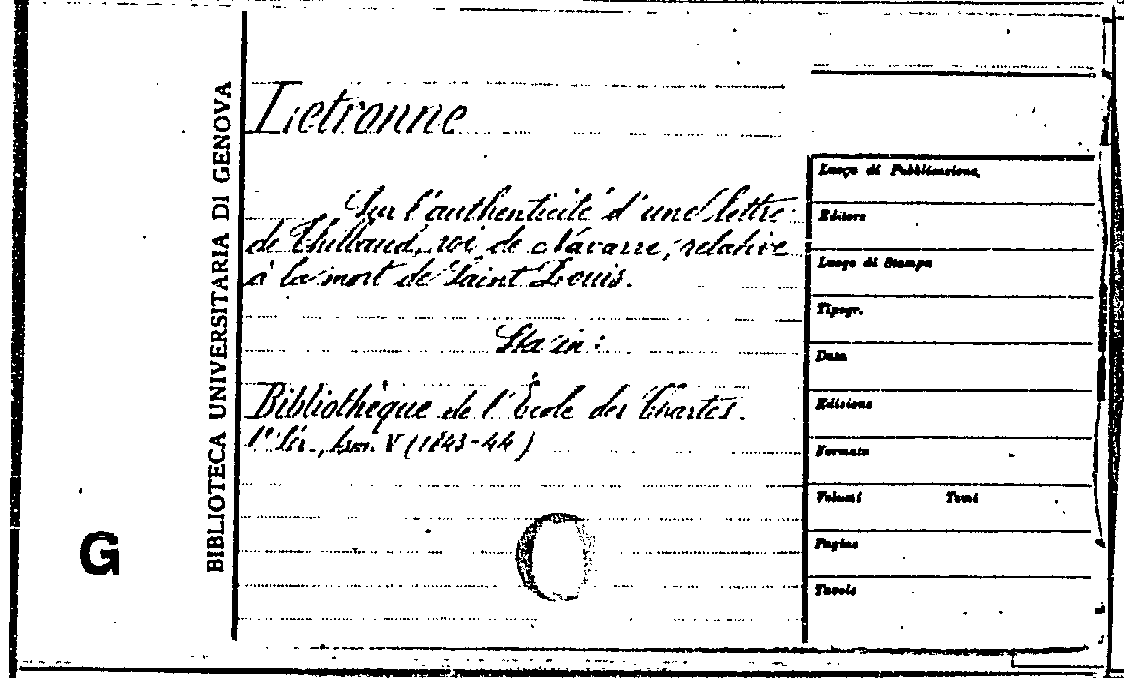 BIBLIOTECA UNIVERSITARIA DI GENOVA
G
Letronne
Sur l'authenticité d'une lettre
de Thibaud, roi de Navarre, relative
à la mort de Saint Louis.
Sta in:
Bibliothèque de l'École des Chartes.
1ª Sér., tom. V (1843-44)
Luogo di Pubblicazione
Editore
Luogo di Stampa
Tipogr.
Data
Edizione
Formato
Volumi Tomi
Pagine
Tavole